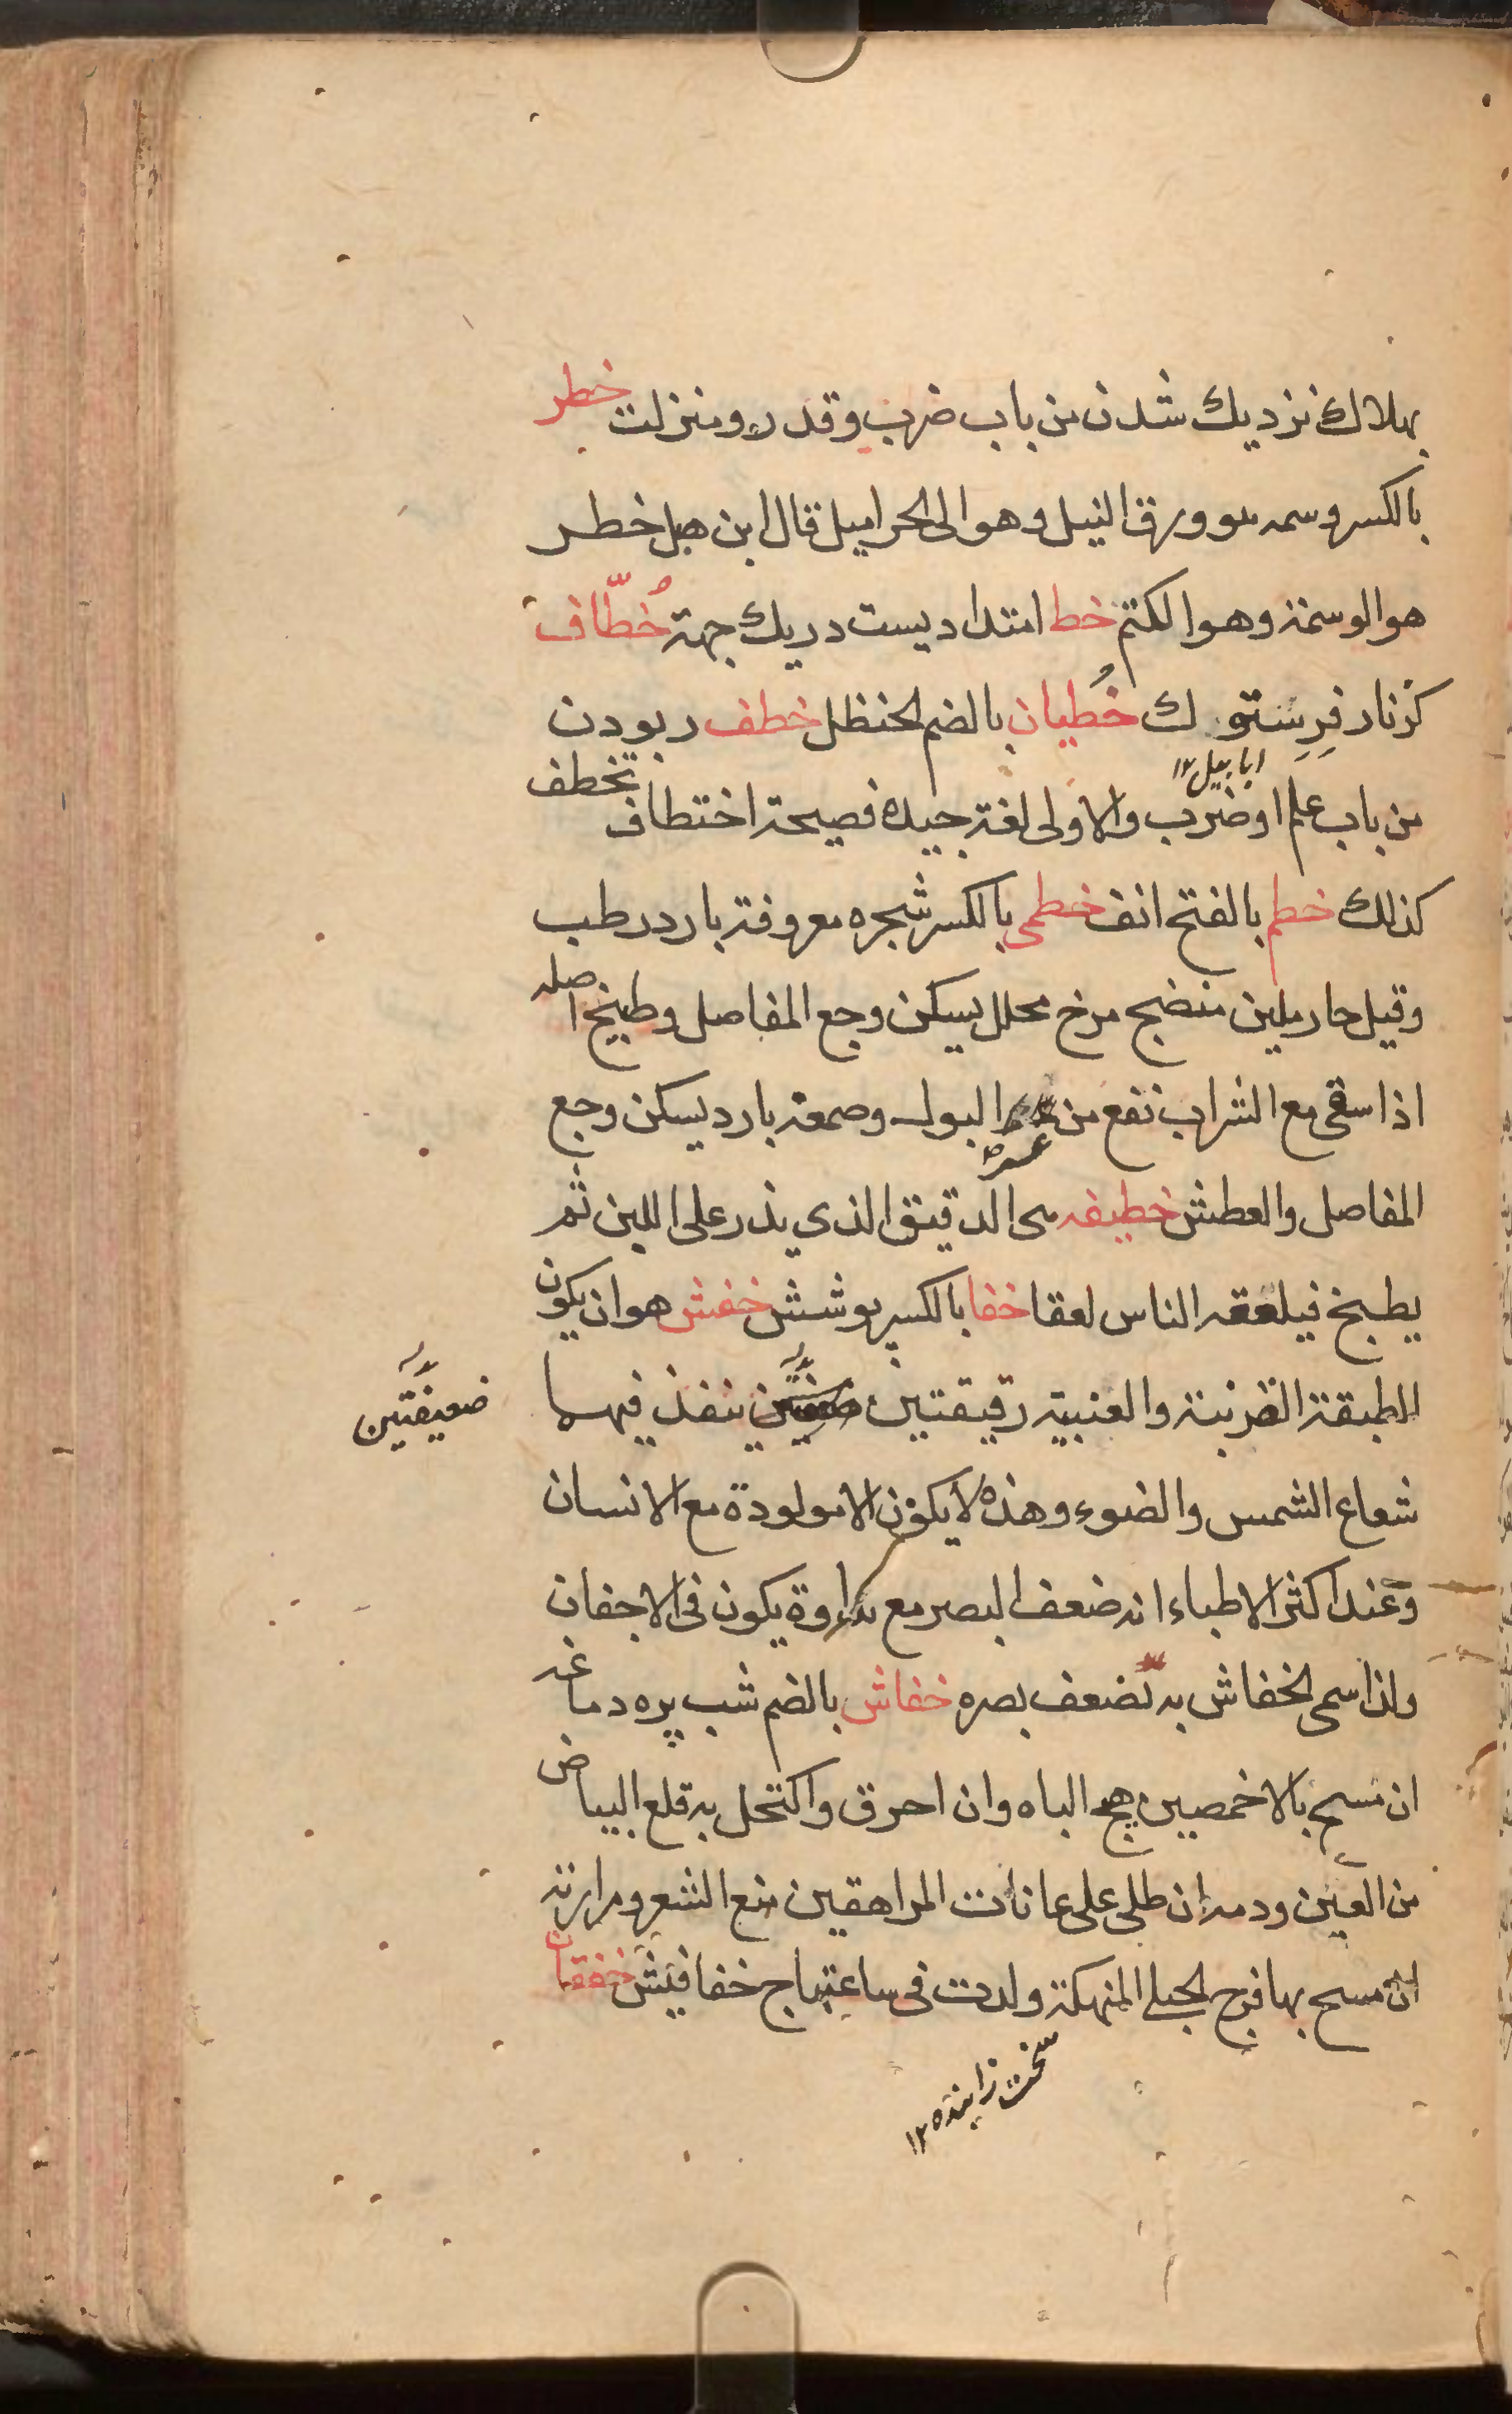 بهلاك نزديك شدن من باب ضرب وقدر ومنزلت خطر
بالكسر وسمه هو ورق النيل وهو الى الحر اميل قال ابن هبل خطر
هو الوسمة وهو الكتم خط امتداديست در يك جهة خُطّاف
كزنار فرستوك خُطيان بالضم الحنظل خطف ربودن
ابابيل ١٢
من باب علم او ضرب والاولى لغة جيده فصيحة اختطاف تخطف
كذلك خطم بالفتح انف خطمى بالكسر شجره معروفة بارد رطب
وقيل حار ملين منضج مرخ محلل يسكن وجع المفاصل وطبيخ اصله
اذا سقى مع الشراب نفع من البول وصمغه بارد يسكن وجع
عسر
المفاصل والعطش خطيفه هى الدقيق الذي يذر على اللبن ثم
يطبخ فيلعقه الناس لعقا خفا بالكسر پوشش خفش هو ان يكون
الطبقة القرنية والعنبية رقيقتين ينفذ فيهما
ضعيفتين
شعاع الشمس والضوء وهذه لا يكون الا مولودة مع الانسان
وعند اكثر الاطباء انه ضعف البصر مع نداوة يكون فى الاجفان
ولذا سمى الخفاش به لضعف بصره خفاش بالضم شب پره دماغه
ان مسح بالاخمصين هيج الباه وان احرق واكتحل به قلع البياض
من العين ودمه ان طلى على عانات المراهقين منع الشعر ومرارته
ان مسح بها فرج الحبلى المنهكة ولدت فى ساعتها ج خفافيش خفقان
سخت زاينده ١٢